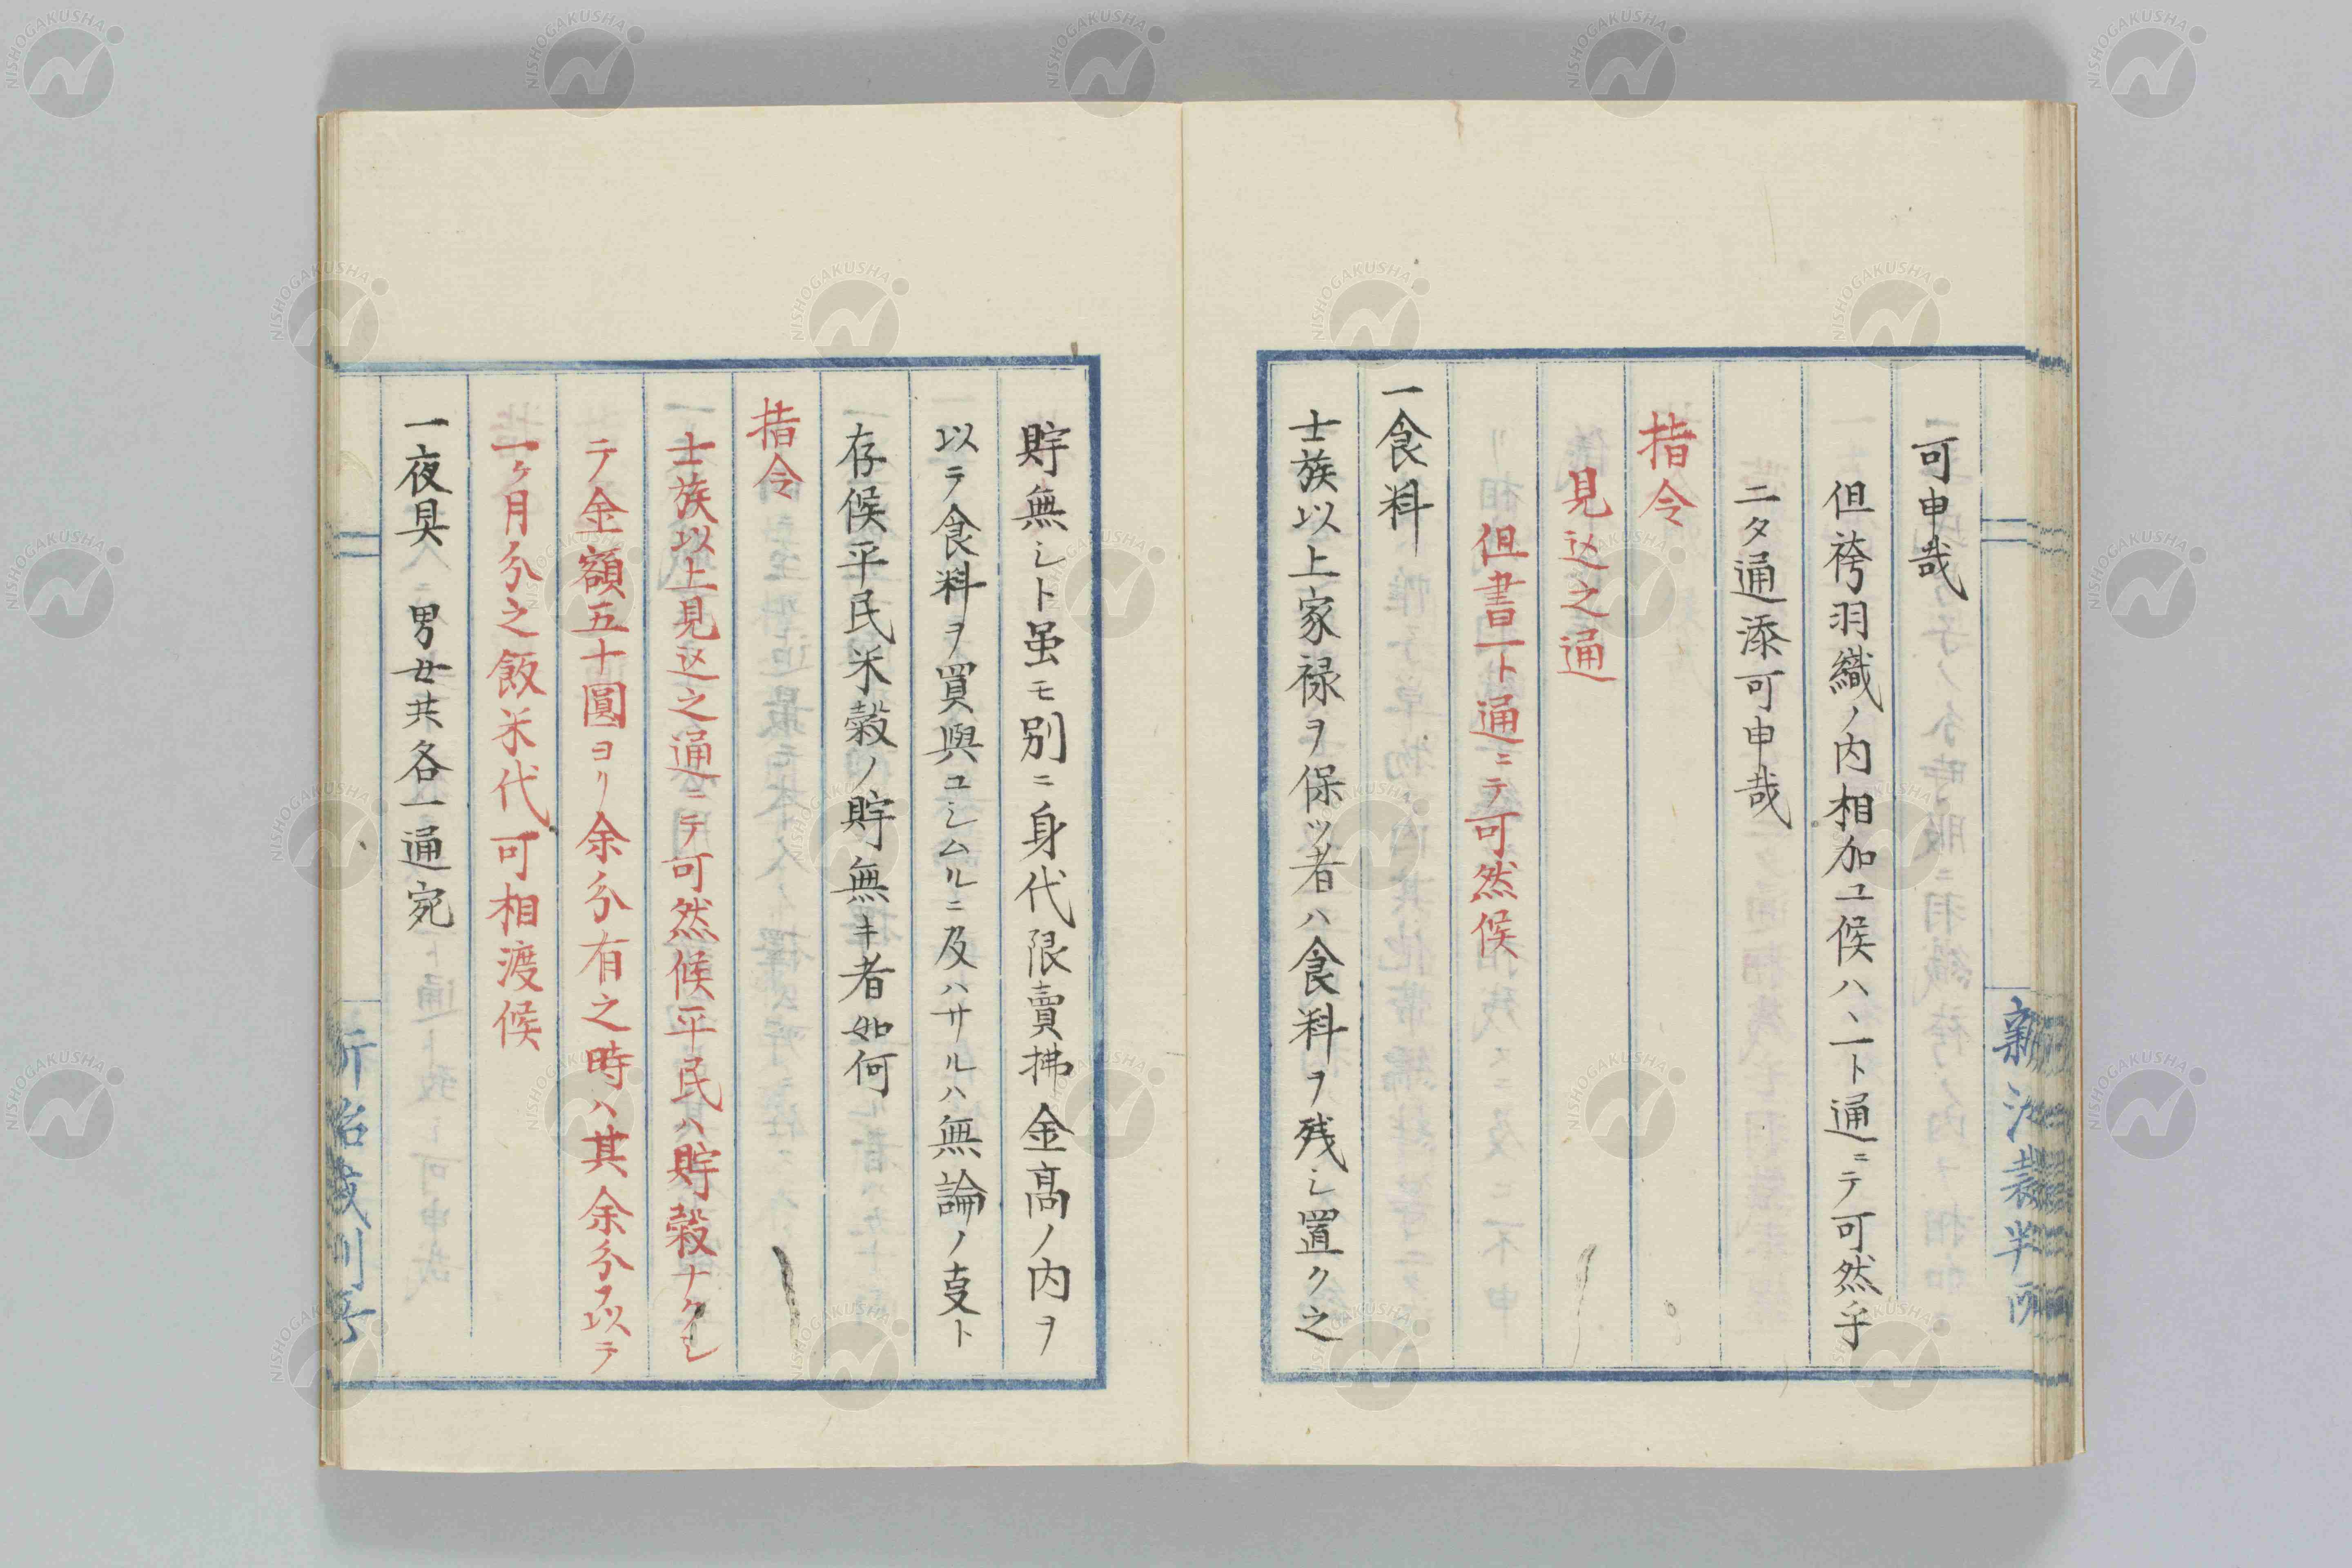 可申哉
但袴羽織ノ内相加ユ候ハヽ一ト通ニテ可然乎
二タ通添可申哉
指令
見込之通
但書一ト通ニテ可然候
一食料
士族以上家禄ヲ保ツ者ハ食料ヲ残シ置ク之
貯無シト虽モ別ニ身代限賣拂金高ノ内ヲ
以テ食料ヲ買與ユシムルニ及ハサルハ無論ノ支ト
存候平民米穀ノ貯無キ者如何
指令
士族以上見込之通ニテ可然候平民ハ貯穀ナクシ
テ金額五十圓ヨリ余分有之時ハ其余分ヲ以テ
一ケ月分之飯米代可相渡候
一夜具 男女共各一通宛
NISHOGAKUSHA